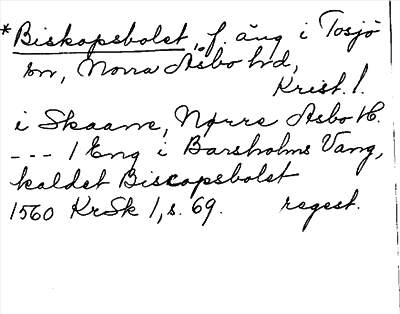 *Biskopsbolet, f. äng i Tosjö
sn, Norra Åsbo hd,
Krist. l.
i Skaane, Nørre Asbo H.
--- 1 Eng i Barsholms Vang,
kaldet Biscopsbolet
1560 KrSk 1, s. 69. regest.